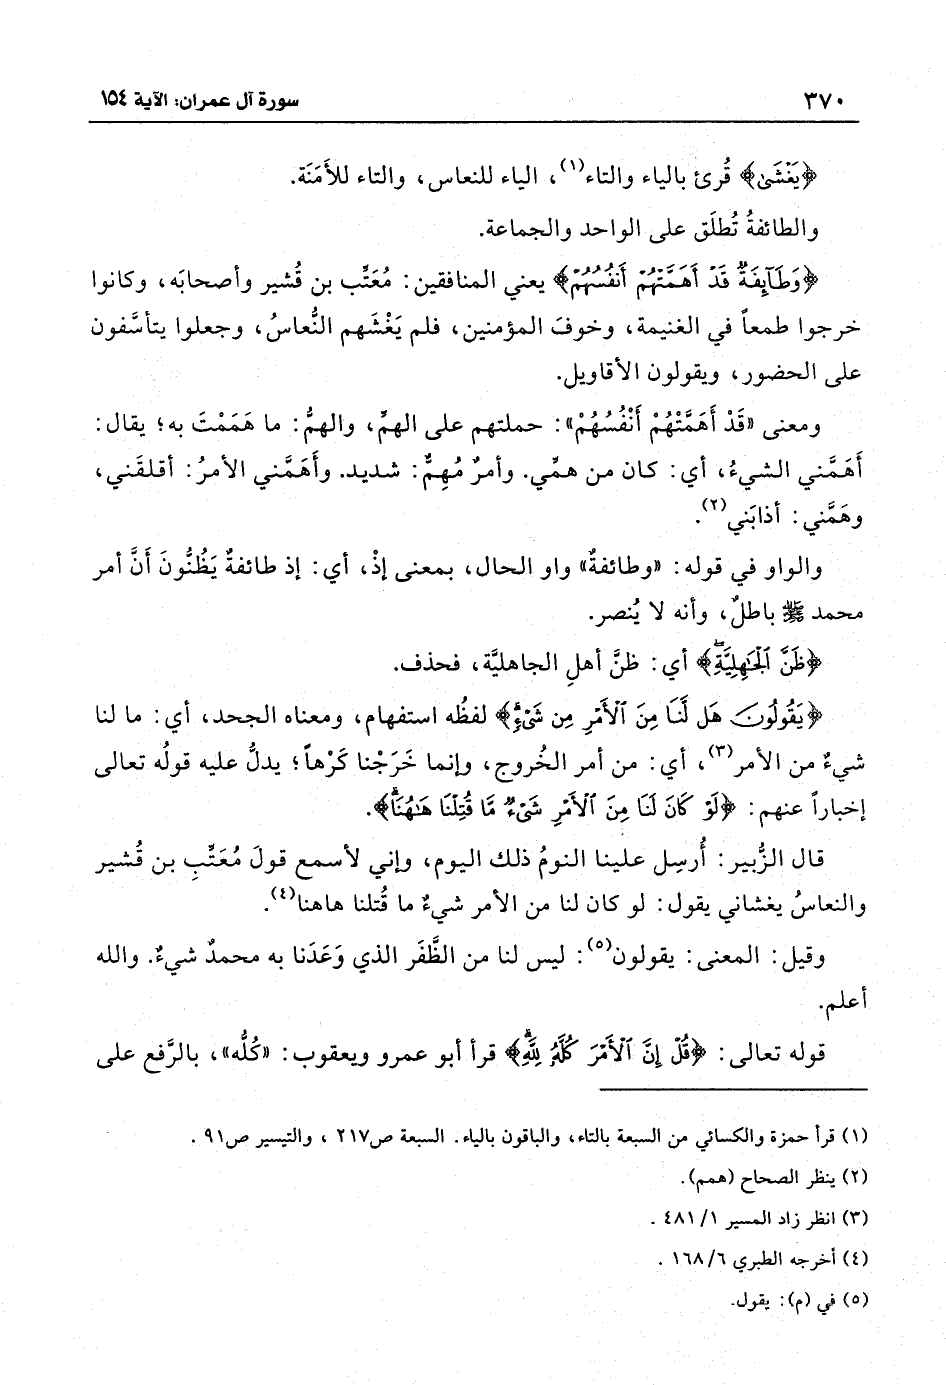 ٣٧٠ سورة آل عمران: الآية ١٥٤
﴿يَغْشَىٰ﴾ قُرئ بالياء والتاء(١)، الياء للنعاس، والتاء للأَمَنَة.
والطائفةُ تُطلَق على الواحد والجماعة.
﴿وَطَآئِفَةٌ قَدْ أَهَمَّتْهُمْ أَنفُسُهُمْ﴾ يعني المنافقين: مُعَتِّب بن قُشير وأصحابَه، وكانوا
خرجوا طمعاً في الغنيمة، وخوفَ المؤمنين، فلم يَغْشَهم النُّعاسُ، وجعلوا يتأسَّفون
على الحضور، ويقولون الأقاويل.
ومعنى «قَدْ أَهَمَّتْهُمْ أَنْفُسُهُمْ»: حملتهم على الهمِّ، والهمُّ: ما هَمَمْتَ به؛ يقال:
أَهَمَّني الشيءُ، أي: كان من همِّي. وأمرٌ مُهِمٌّ: شديد. وأَهَمَّني الأمرُ: أقلقَني،
وهَمَّني: أذابَني(٢).
والواو في قوله: «وطائفةٌ» واو الحال، بمعنى إذْ، أي: إذ طائفةٌ يَظُنُّونَ أَنَّ أمر
محمد ﷺ باطلٌ، وأنه لا يُنصر.
﴿ظَنَّ ٱلْجَٰهِلِيَّةِۖ﴾ أي: ظنَّ أهلِ الجاهليَّة، فحذف.
﴿يَقُولُونَ هَل لَّنَا مِنَ ٱلْأَمْرِ مِن شَىْءٍۗ﴾ لفظُه استفهام، ومعناه الجحد، أي: ما لنا
شيءٌ من الأمر(٣)، أي: من أمر الخُروج، وإنما خَرَجْنا كَرْهاً؛ يدلُّ عليه قولُه تعالى
إخباراً عنهم: ﴿لَوْ كَانَ لَنَا مِنَ ٱلْأَمْرِ شَىْءٌ مَّا قُتِلْنَا هَٰهُنَاۗ﴾.
قال الزُّبير: أُرسِل علينا النومُ ذلك اليوم، وإني لأسمع قولَ مُعَتِّبِ بن قُشير
والنعاسُ يغشاني يقول: لو كان لنا من الأمر شيءٌ ما قُتلنا هاهنا(٤).
وقيل: المعنى: يقولون(٥): ليس لنا من الظَّفَر الذي وَعَدَنا به محمدٌ شيءٌ. والله
أعلم.
قوله تعالى: ﴿قُلْ إِنَّ ٱلْأَمْرَ كُلَّهُۥ لِلَّهِۗ﴾ قرأ أبو عمرو ويعقوب: «كُلُّه»، بالرَّفع على
(١) قرأ حمزة والكسائي من السبعة بالتاء، والباقون بالياء. السبعة ص٢١٧ ، والتيسير ص٩١ .
(٢) ينظر الصحاح (همم).
(٣) انظر زاد المسير ١/ ٤٨١ .
(٤) أخرجه الطبري ٦/ ١٦٨ .
(٥) في (م): يقول.